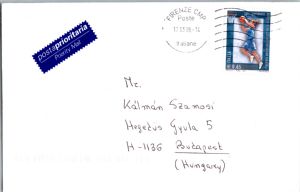 postaprioritaria
Priority Mail
FIRENZE CMP
Poste
Italiane
€ 0,45
Mr.
Kálmán Szamosi
Hegedus Gyula 5
H-1136 Budapest
(Hungary)